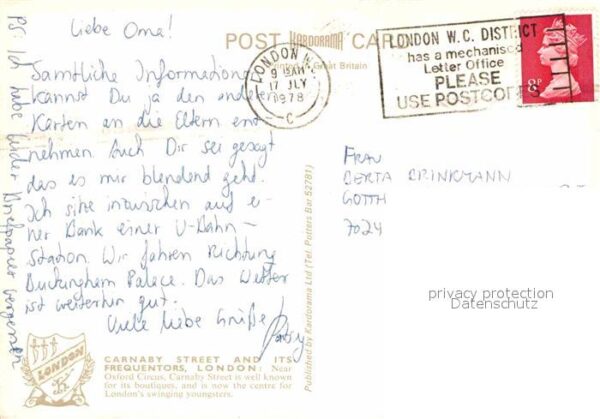 Liebe Oma!
Sämtliche Informationen
kannst Du ja den anderen
Karten an die Eltern ent-
nehmen. Auch Dir sei gesagt
das es mir blendend geht.
Ich sitze inzwischen auf ei-
ner Bank einer U-Bahn-
Station. Wir fahren Richtung
Buckingham Palace. Das Wetter
ist weiterhin gut.
Viele liebe Grüße
PS: Ich habe leider Briefpapier vergessen
POST Kardorama CARD
Great Britain
LONDON W.C.
9 15AM
17 JLY
1978
C
LONDON W.C. DISTRICT
has a mechanised
Letter Office
PLEASE
USE POSTCODES
8P
FRAU
BERTA BRINKMANN
7024
privacy protection
Datenschutz
Published by Kardorama Ltd (Tel. Potters Bar 52781)
LONDON
CARNABY STREET AND ITS
FREQUENTORS, LONDON: Near
Oxford Circus, Carnaby Street is well known
for its boutiques, and is now the centre for
London's swinging youngsters.